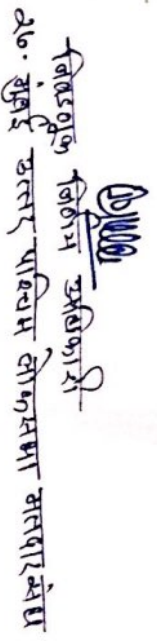 निवडणूक निर्णय अधिकारी
२७. मुंबई उत्तर पश्चिम लोकसभा मतदारसंघ